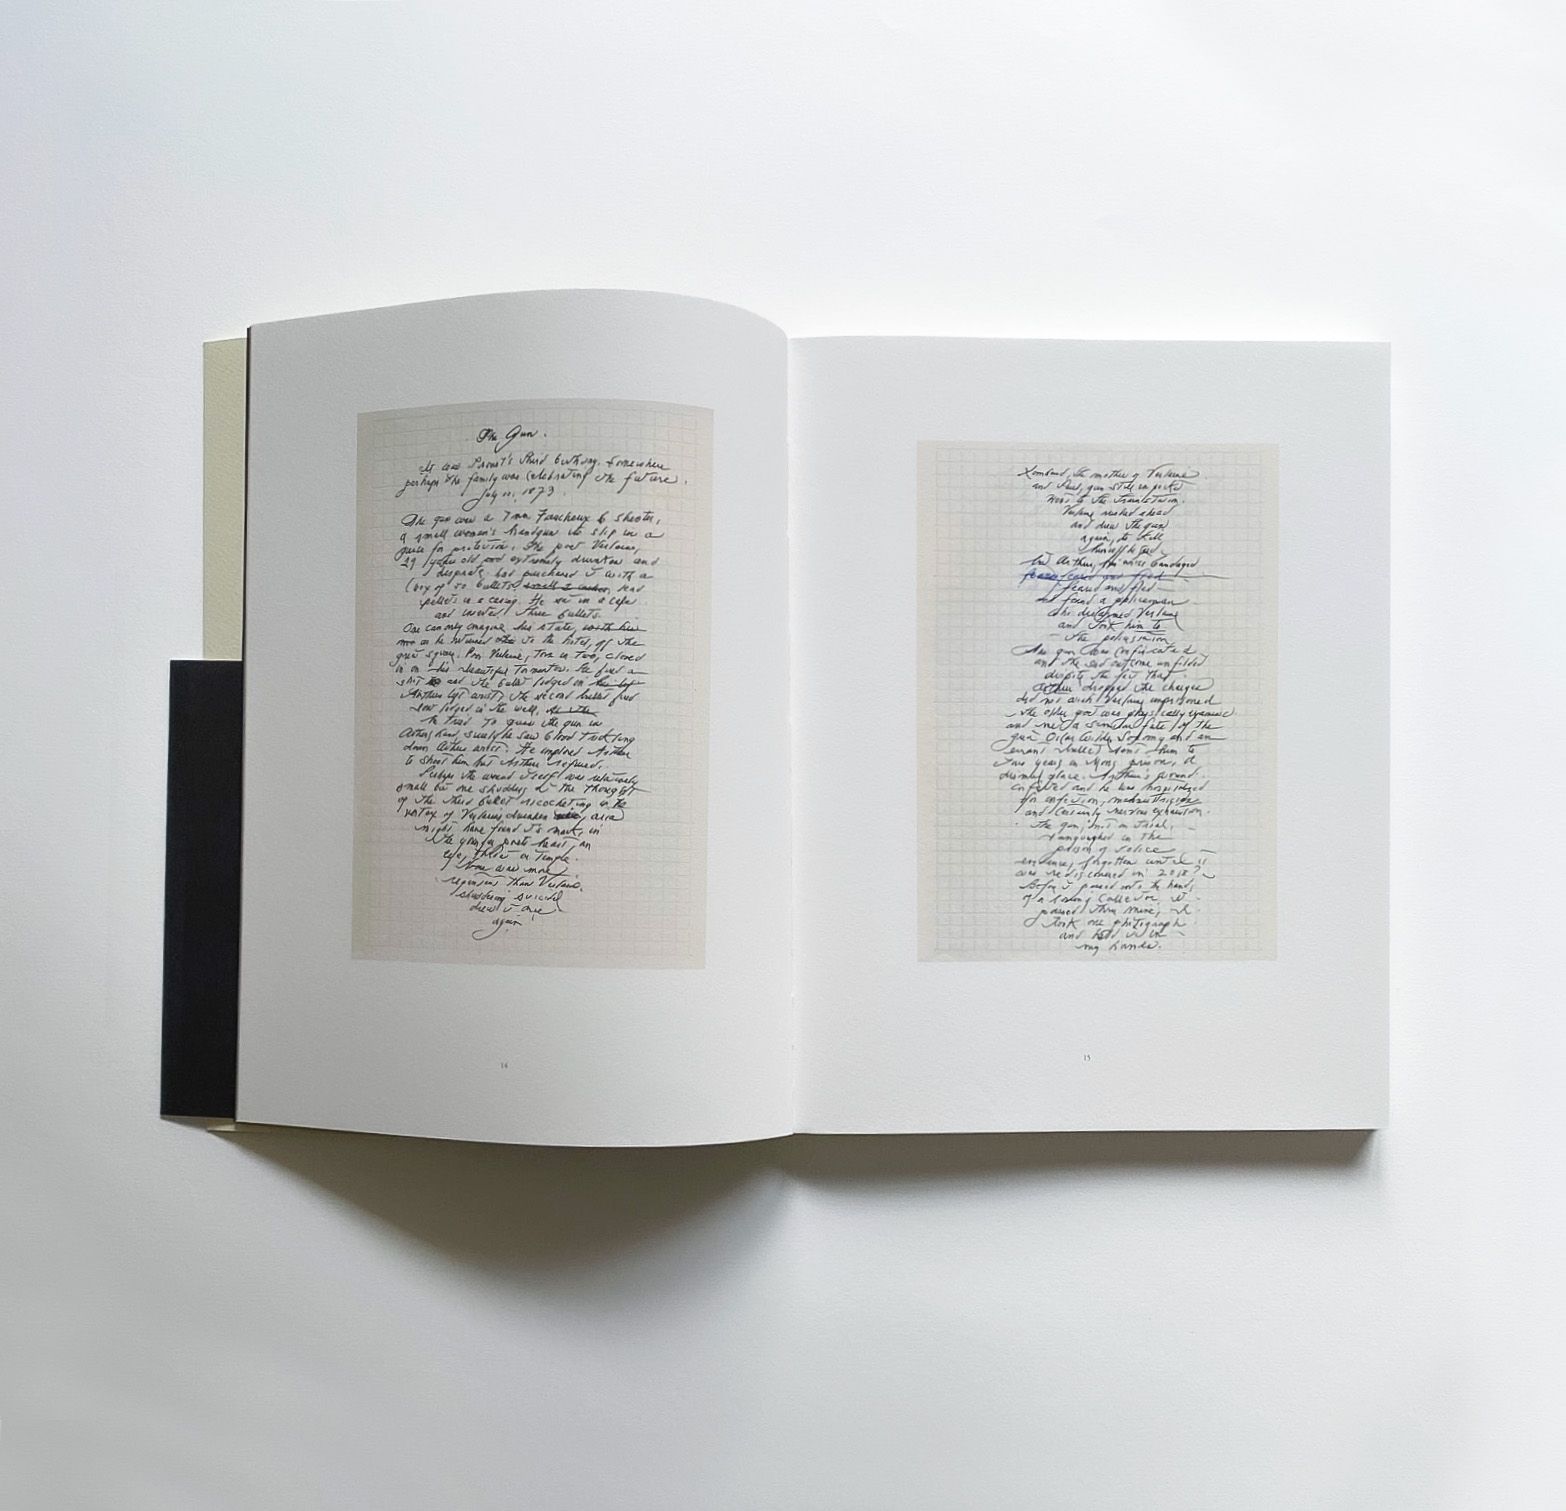 The Gun.
It was Proust's third birthday. Somewhere
perhaps the family was celebrating the future.
July 10, 1873.
The gun was a 7mm Faucheux 6 shooter,
a small women's handgun to slip in a
purse for protection. The poet Verlaine,
29 years old and extremely drunken and
desperate, had purchased it with a
box of 50 bullets, small lead
pellets in a casing. He sat in a cafe
and inserted three bullets.
One can only imagine his state,
as he returned to the hotel, off the
great square. Poor Verlaine, torn in two, closed
in on his beautiful tormentor. He fired a
shot and the bullet lodged on
Arthur's left wrist, the second bullet fired
now lodged in the wall.
He tried to guide the gun in
Arthur's hand, surely he saw blood trickling
down Arthur's wrist. He implored Arthur
to shoot him but Arthur refused.
Perhaps the wound itself was relatively
small but one shudders at the thought
of the third bullet ricocheting in the
vortex of Verlaine's drunken aria
might have found its mark, in
the younger poet's heart, an
eye, throat or temple.
None was more
repentant than Verlaine,
shuddering suicidal
drew it once
again
14
the mother of Verlaine
and Paul, gun still in pocket
went to the train station.
Verlaine rushed ahead
and drew the gun
again, to kill
himself he said
but Arthur, his wrist bandaged
feared and fled
feared and fled
and found a policeman
who disarmed Verlaine
and took him to
the police station
The gun was confiscated
and the sad outcome unfolded
despite the fact that
Arthur dropped the charges
did not wish Verlaine imprisoned
the older poet was physically examined
and met a similar fate of the
great Oscar Wilde. Sodomy and an
errant bullet sent him to
two years in Mons prison, a
dismal place. Arthur's wound
infected and he was hospitalized
for infection, malnutrition
and certainly nervous exhaustion.
The gun, not on trial,
vanquished in the
prison of police
evidence, forgotten until it
was rediscovered in 2018?
Before it passed into the hands
of a loving collector it
passed through mine, I
took one photograph
and held it in
my hands.
15